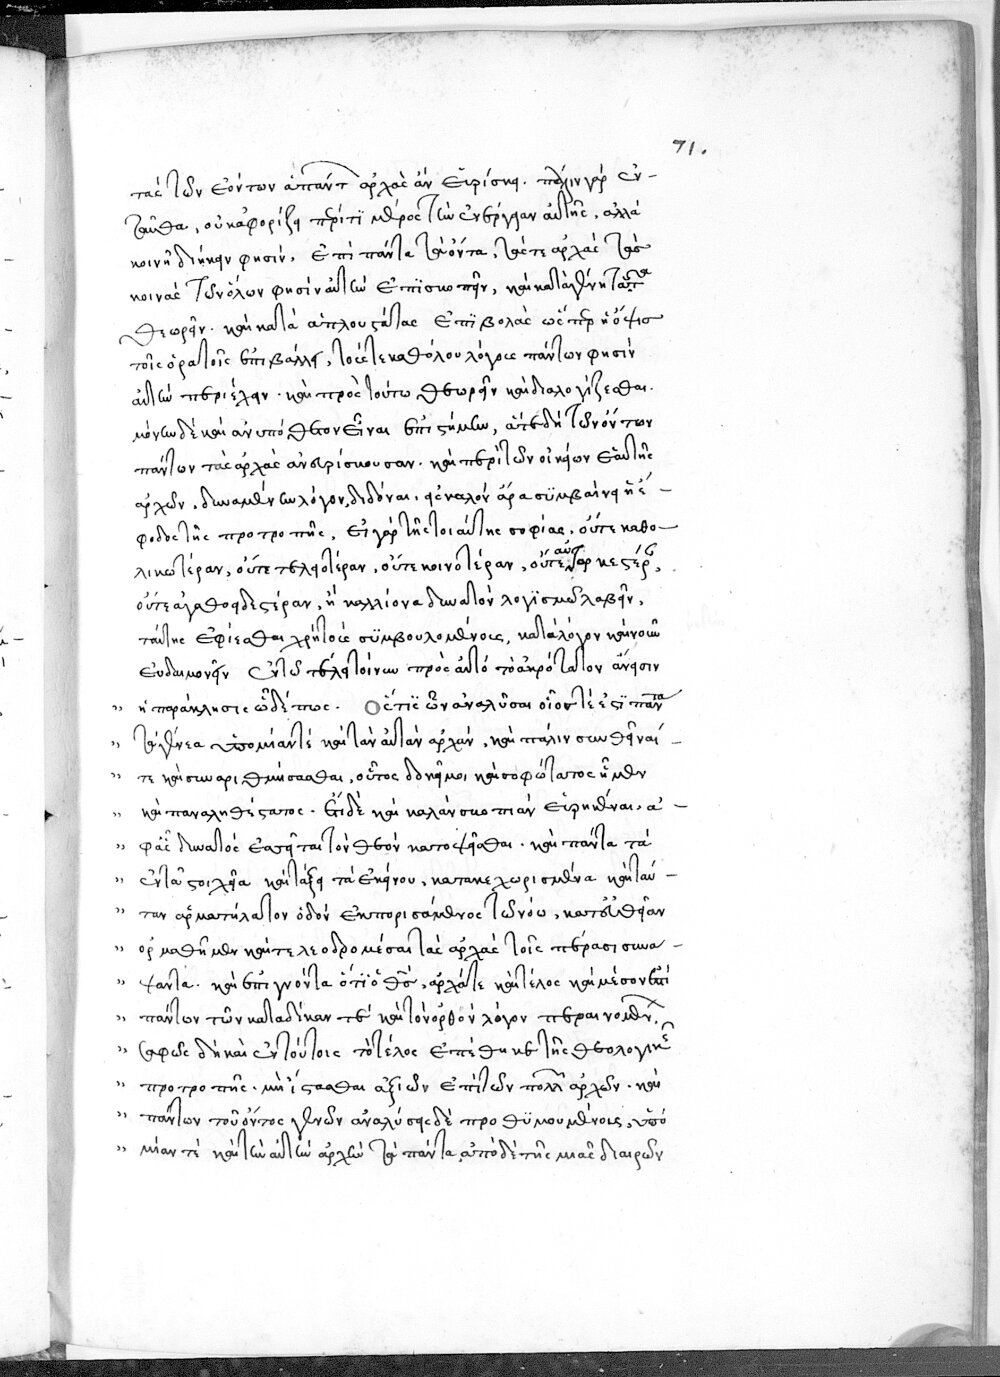 71.
τὰς τῶν ἐόντων ἁπάντων ἀρχὰς ἀνευρίσκει. πάλιν γὰρ ἐν-
ταῦθα, οὐκ ἀφορίζει περί τι μέρος τὴν ἐνέργειαν αὐτῆς, ἀλλὰ
κοινῇ διήκειν φησὶν, ἐπὶ πάντα τὰ ὄντα, τάς τε ἀρχὰς τὰς
κοινὰς τῶν ὅλων φησὶν αὐτὴν ἐπισκοπεῖν, καὶ κατὰ γένη ταύτας
θεωρεῖν. καὶ κατὰ ἁπλουστάτας ἐπιβολὰς ὥσπερ ἡ ὄψις
τοῖς ὁρατοῖς ἐπιβάλλει, τούς τε καθόλου λόγους πάντων φησὶν
αὐτὴν περιέχειν. καὶ πρὸς τούτῳ θεωρεῖν καὶ διαλογίζεσθαι.
μόνην δὲ καὶ ἀνυπόθετον εἶναι ἐπιστήμην, ἅτε δὴ τῶν ὄντων
πάντων τὰς ἀρχὰς ἀνευρίσκουσαν. καὶ περὶ τῶν οἰκείων ἑαυτῆς
ἀρχῶν, δυναμένην λόγον διδόναι. καλὸν ἄρα συμβαίνει ἡ ἔ-
φοδος τῆς προτροπῆς, εἰ γὰρ τῆς τοιαύτης σοφίας, οὔτε καθο-
λικωτέραν, οὔτε τελειοτέραν, οὔτε κοινοτέραν, οὔτε αὐταρκεστέραν,
οὔτε ἀγαθοειδεστέραν, ἢ καλλίονα δυνατὸν λογισμῷ λαβεῖν,
ταύτης ἐφίεσθαι χρὴ τοὺς συμβουλομένους, κατὰ λόγον καὶ νοῦν
εὐδαιμονεῖν ἐν τῷ τελει πρὸς αὐτὸ τὸ ἀκρότατον ἄνεισιν
ἡ παράκλησις ὧδέ πως. Ὅστις ὦν ἀναλῦσαι οἷός τέ ἐστι πάντα
τὰ γένεα ὑπο μίαν τὲ καὶ τὰν αὐτὰν ἀρχὰν, καὶ πάλιν συνθεῖναί
τε καὶ συναριθμήσασθαι, οὗτος δοκεῖ μοι καὶ σοφώτατος ἦμεν
καὶ παναληθέστατος. Ἔτι δὲ καὶ καλὰν σκοπιὰν εὑρηκέναι, ἀ-
φ' ἇς δυνατὸς ἐσσεῖται τὸν θεὸν κατοψεῖσθαι. καὶ πάντα τὰ
ἐν τᾷ στοιχείᾳ καὶ τάξει τᾷ ἐκείνου, κατακεχωρισμένα καὶ ταύ-
ταν ἁρματήλατον ὁδὸν ἐκπορισάμενος τῷ νόῳ, κατ' εὐθεῖαν
ὁρμαθῆμεν καὶ τελεοδρομέσαι τὰς ἀρχὰς τοῖς πέρασι συνά-
ψαντα. καὶ ἐπιγνόντα ὅτι ὁ θεὸς, ἀρχά τε καὶ τέλος καὶ μέσον ἐστὶ
πάντων τῶν κατὰ δίκαν τὲ καὶ τὸν ὀρθὸν λόγον περαινομένων.
σαφῶς δὴ κἀν τούτοις τὸ τέλος ἐπέθηκε τῆς θεολογικῆς
προτροπῆς. μὴ ἵστασθαι ἀξιῶν ἐπὶ τῶν πολλῶν ἀρχῶν. καὶ
πάντων τοῦ ὄντος γενῶν ἀναλύσει δὲ προθυμουμένοις, ὑπὸ
μίαν τὲ καὶ τὴν αὐτὴν ἀρχὴν τὰ πάντα, ἀπὸ δὲ τῆς μιᾶς διαιρῶν